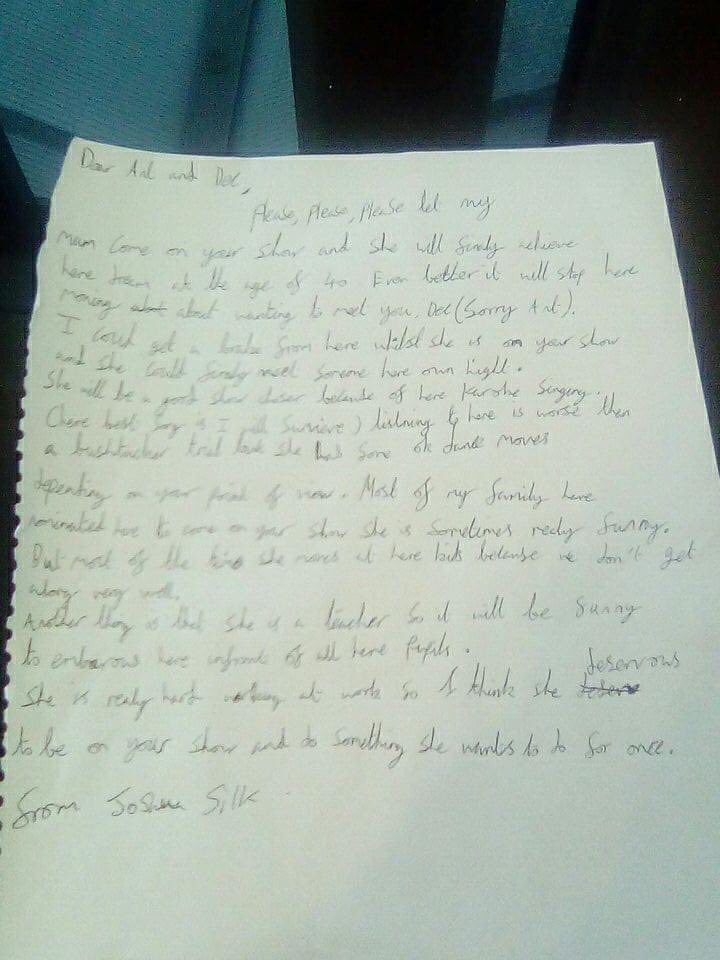 Dear Ant and Dec,
Please, Please, Please let my
mum come on your show and she will finaly achieve
here dream at the age of 40 Even better it will stop here
moning about about wanting to meet you, Dec (Sorry Ant).
I could get a brake from here whilst she is on your show
and she could finaly meet someone here own hight.
She will be a good show choser because of here Karoke Singing.
(here best song is I will Survieve) listning to here is worse then
a bushtucker trial but she has some ok dance moves
depending on your point of view. Most of my family have
nominated here to come on your show she is sometimes realy funny.
But most of the time she mones at here kids because we don't get
along very well.
Another thing is that she is a teacher so it will be funny
to embarous here infront of all here Pupils.
She is realy hard working at work so I think she deservous
to be on your show and do something she wants to do for once.
from Joshua Silk